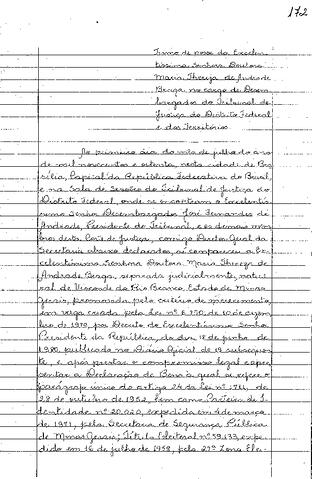 172
Termo de posse da Excelen-
tíssima Senhora Doutora
Maria Thereza de Andrade
Braga no cargo de Desem-
bargador do Tribunal de
Justiça do Distrito Federal
e dos Territórios
Ao primeiro dia do mês de julho do ano
de mil novecentos e oitenta, nesta cidade de Bra-
sília, Capital da República Federativa do Brasil,
e na Sala de Sessões do Tribunal de Justiça do
Distrito Federal, onde se encontram o Excelentís-
simo Senhor Desembargador José Fernandes de
Andrade, Presidente do Tribunal, e os demais mem-
bros desta Corte de Justiça, comigo Diretor Geral da
Secretaria abaixo declarado, aí compareceu a Ex-
celentíssima Senhora Doutora Maria Thereza de
Andrade Braga, separada judicialmente, natu-
ral de Visconde do Rio Branco, Estado de Minas
Gerais, promovida pelo critério de merecimento,
em vaga criada pela Lei nº 6.750, de 10 de dezem-
bro de 1979, por Decreto do Excelentíssimo Senhor
Presidente da República, de de junho de
1980, publicado no Diário Oficial de 19 subsequen-
te, e após prestar o compromisso legal e apre-
sentar a Declaração de Bens à qual se refere o
parágrafo único do artigo 24 da Lei nº 1711, de
28 de outubro de 1952, bem como Carteira de I-
dentidade nº 20.020, expedida em 4 de março
de 1971, pela Secretaria de Segurança Pública
de Minas Gerais; Título Eleitoral nº 59.133, expe-
dido em 16 de julho de 1958, pela 27ª Zona Ele-